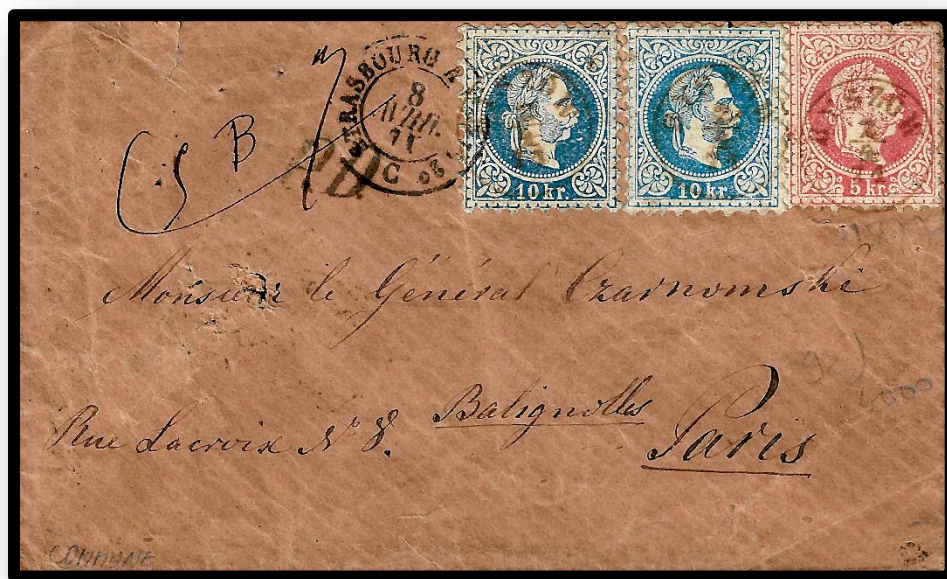 STRASBOURG A
8
AVRIL
71
PD
B
10 kr. 10 kr. 5 kr.
Monsieur le Général Czarnomski
Rue Lacroix N° 8. Batignolles
Paris
COMMUNE